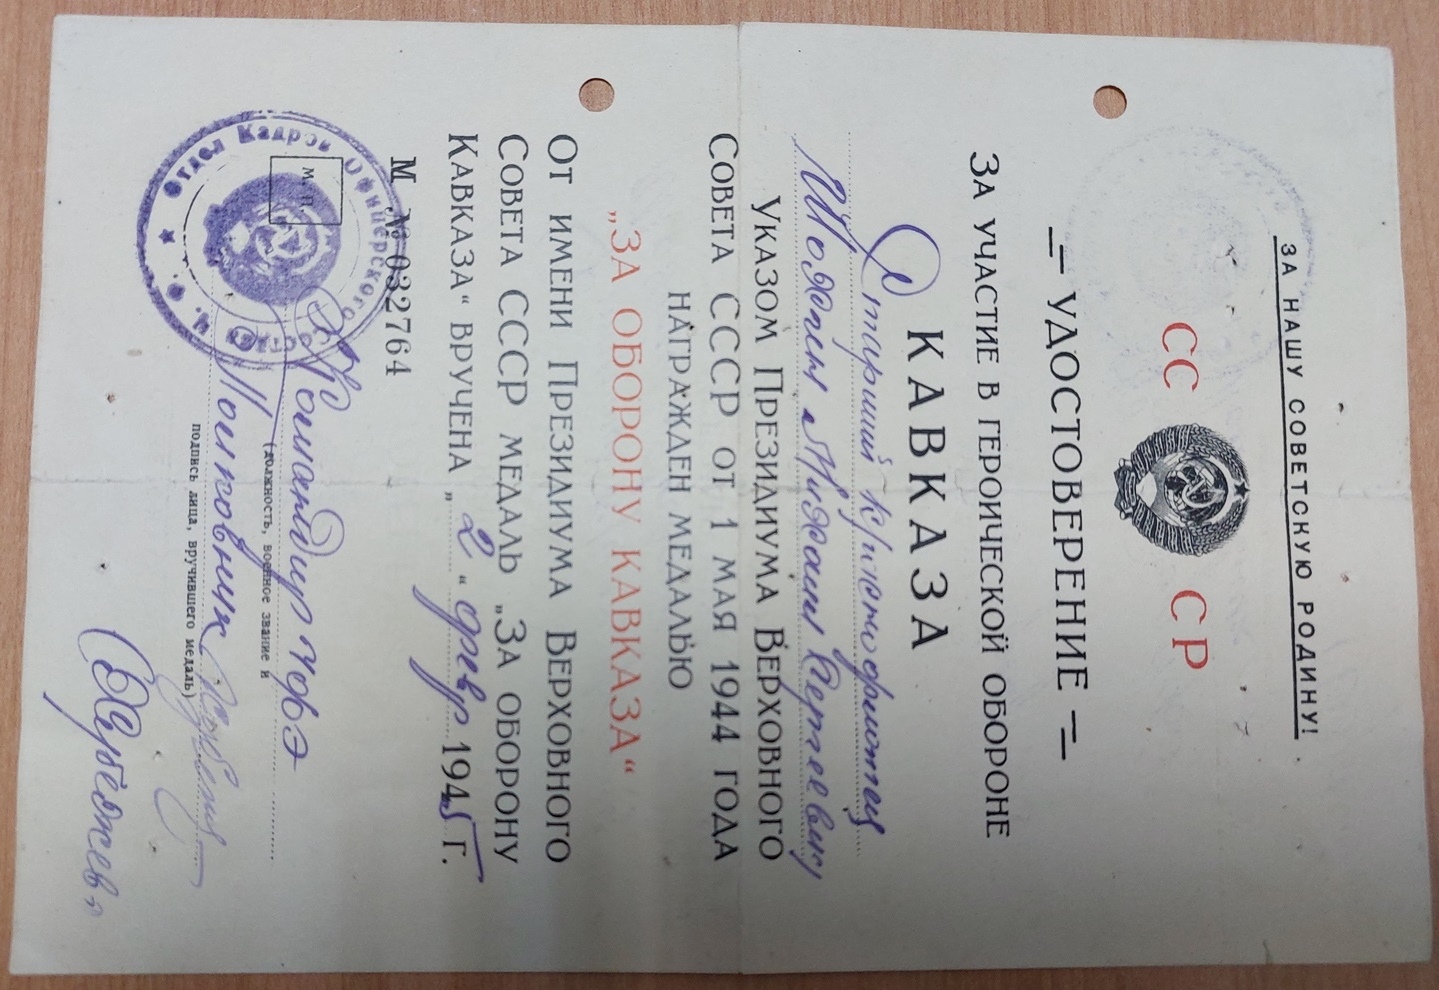 ЗА НАШУ СОВЕТСКУЮ РОДИНУ!
СС СР
— УДОСТОВЕРЕНИЕ —
ЗА УЧАСТИЕ В ГЕРОИЧЕСКОЙ ОБОРОНЕ
КАВКАЗА
Старший
Михаил Сергеевич
УКАЗОМ ПРЕЗИДИУМА ВЕРХОВНОГО
СОВЕТА СССР ОТ 1 МАЯ 1944 ГОДА
НАГРАЖДЕН МЕДАЛЬЮ
„ЗА ОБОРОНУ КАВКАЗА“
ОТ ИМЕНИ ПРЕЗИДИУМА ВЕРХОВНОГО
СОВЕТА СССР МЕДАЛЬ „ЗА ОБОРОНУ
КАВКАЗА“ ВРУЧЕНА „2“ февр 1945 Г.
М № 032764
М. П.
Отдел Кадров Офицерского Состава Ч. Ф.
Командир
(должность, военное звание и
Полковник
подпись лица, вручившего медаль)